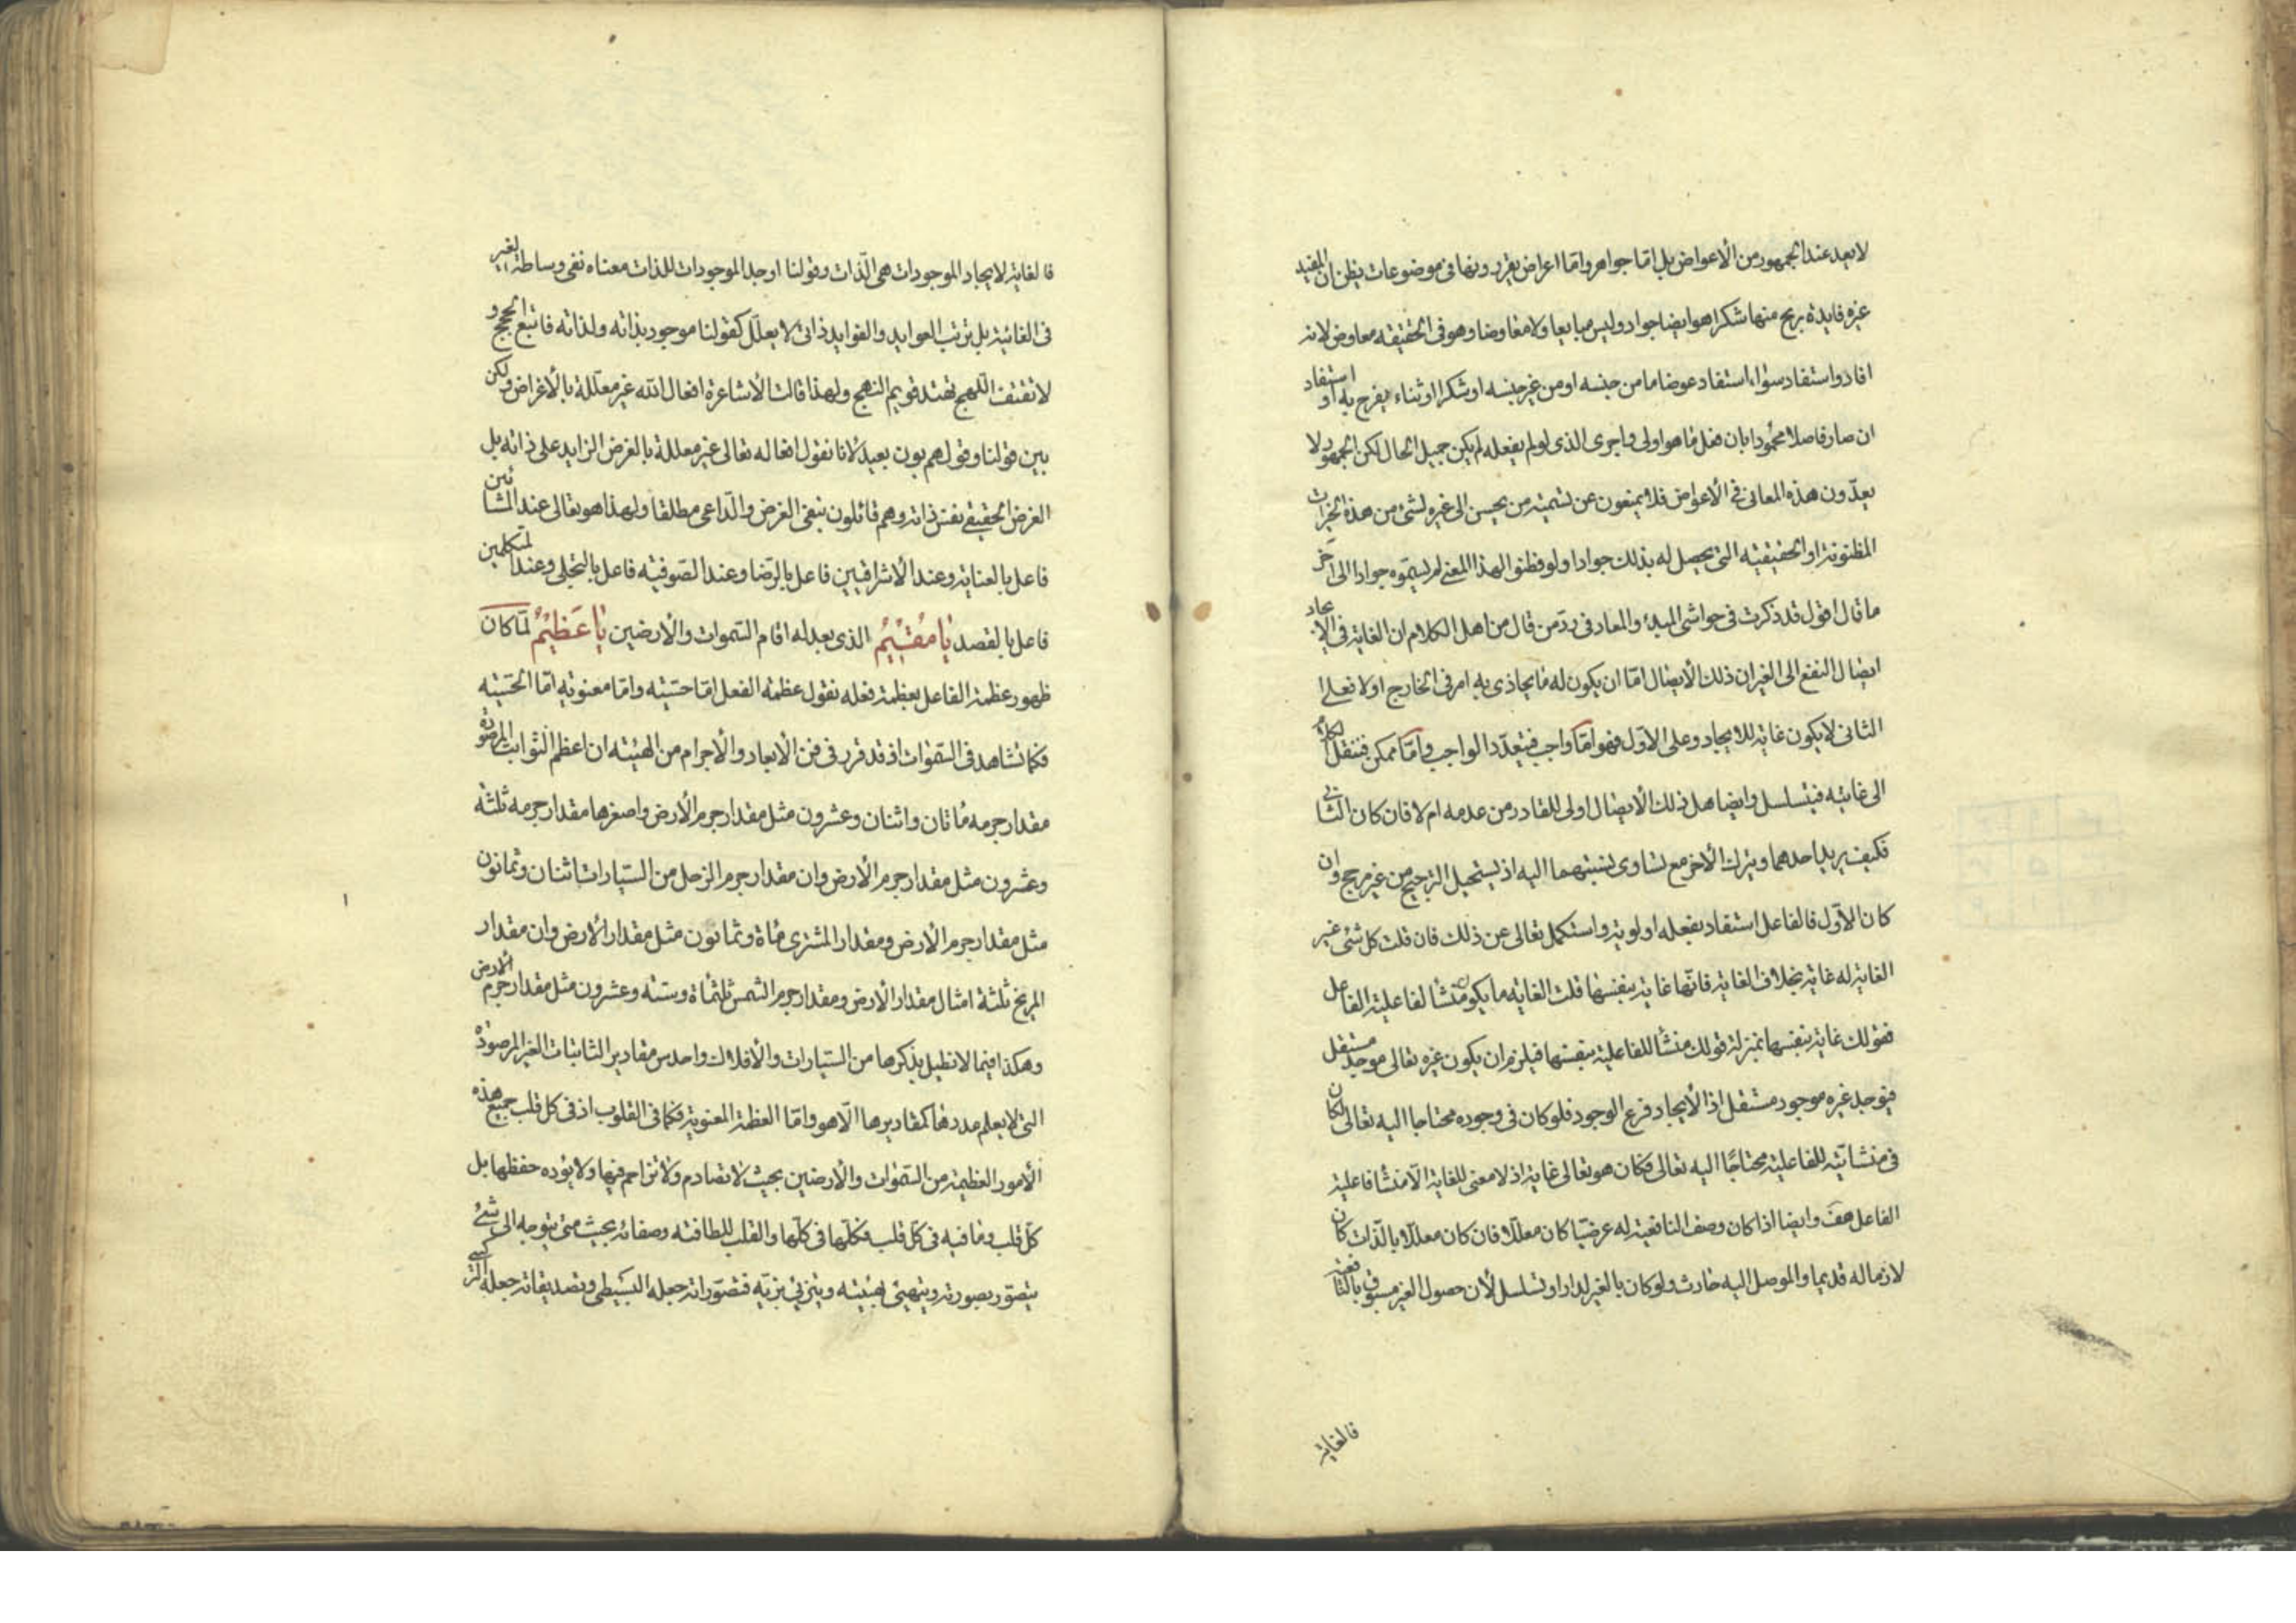 لا يعد عند الجمهور من الأعواض بل اما جواهر واما اعراض يقررونها في موضوعات يظن ان المفيد
غيره فايدة يربح منها شكرا هو ايضا جواد وليس مبايعا ولا معاوضا وهو في الحقيقه معاوض لانه
افاد واستفاد سواء استفاد عوضا ما من جنسه او من غير جنسه او شكرا او ثناء يفرح به او استفاد
ان صار فاضلا محمودا بان فعل ما هو اولى واحرى الذى لو لم يفعله لم يكن جميل الحال لكن الجمهور لا
يعدّون هذه المعانى في الأعواض فلا يمنعون عن تسمية من يحسن الى غيره بشىء من هذه الخيرات
المظنونة او الحقيقيه التى يحصل له بذلك جوادا ولو فطنوا لهذا المعنى لم يسمّوه جوادا الى آخر
ما قال اقول قد ذكرت فى حواشى المبدء والمعاد فى ردّ من قال من اهل الكلام ان الغاية فى الايجاد
ايصال النفع الى الغير ان ذلك الأيصال امّا ان يكون له ما يحاذى به امر فى الخارج او لا فعلى
الثانى لا يكون غاية للايجاد وعلى الاوّل فهو امّا واجب فيتعدّد الواجب وامّا ممكن فننقل الكلام
الى غايته فيتسلسل وايضا هل ذلك الأيصال اولى للقادر من عدمه ام لا فان كان الثانى
فكيف يريد احدهما ويترك الأخر مع تساوى نسبتهما اليه اذ يستحيل الترجيح من غير مرجح وان
كان الاوّل فالفاعل استفاد بفعله اولوية واستكمل تعالى عن ذلك فان قلت كل شئ غير
الغاية له غاية بخلاف الغاية فانّها غاية بنفسها قلت الغايه ما يكون منشأ لفاعلية الفاعل
فقولك غاية بنفسها بمنزلة قولك منشأ للفاعلية بنفسها فيلزم ان يكون غيره تعالى موجد مستقل
فيوجد غيره موجود مستقل اذ الأيجاد فرع الوجود فلو كان فى وجوده محتاجا اليه تعالى لكان
فى منشائيّته للفاعلية محتاجًا اليه تعالى فكان هو تعالى غاية اذ لا معنى للغاية الّا منشا فاعلية
الفاعل هف وايضا اذا كان وصف النافعية له عرضيّا كان معللا فان كان معللا بالذّات كان
لازما له قديما والموصل اليه حادث ولو كان بالغير لدار او تسلسل لأن حصول الغير مسبوق بالنافعية
فالغاية
فالغاية لايجاد الموجودات هى الذّات وقولنا اوجد الموجودات للذات معناه نفى وساطة الغير
فى الغائية بل ترتب العوايد والفوايد ذاتى لا يعلّل كقولنا موجود بذاته ولذاته فاتبع الحجج و
لا تقتف اللهج تهتد قويم النهج ولهذا قالت الأشاعرة افعال الله غير معلّلة بالأغراض ولكن
بين قولنا وقولهم بون بعيد لانا نقول افعاله تعالى غير معللة بالغرض الزايد على ذاته بل
الغرض الحقيقى نفس ذاته وهم قائلون بنفى الغرض والدّاعى مطلقا ولهذا هو تعالى عند المشائين
فاعل بالعناية وعند الأشراقيين فاعل بالرّضا وعند الصّوفيه فاعل بالتجلى وعند المتكلمين
فاعل بالقصد يا مُقيمُ الذى بعدله اقام السّموات والأرضين يا عَظيمُ لمّا كان
ظهور عظمة الفاعل بعظمة فعله نقول عظمه الفعل امّا حسّيّه وامّا معنويّه امّا الحسّيّه
فكما نشاهد فى السّموات اذ قد قرر فى فن الأبعاد والأجرام من الهيئه ان اعظم الثوابت المرصودة
مقدار جرمه مأتان واثنان وعشرون مثل مقدار جرم الأرض واصغرها مقدار جرمه ثلثه
وعشرون مثل مقدار جرم الأرض وان مقدار جرم الزحل من السيّارات اثنان وثمانون
مثل مقدار جرم الأرض ومقدار المشترى مأة وثمانون مثل مقدار الأرض وان مقدار
المريخ ثلثة امثال مقدار الأرض ومقدار جرم الشمس ثلثمأة وستة وعشرون مثل مقدار جرم الأرض
وهكذا فيما لا نطيل بذكرها من السيّارات والأفلاك واحدس مقادير الثابتات الغير المرصودة
التى لا يعلم عددها كمقاديرها الّا هو وامّا العظمة المعنوية فكما فى القلوب اذ فى كل قلب جميع هذه
الأمور العظيمة من السّموات والأرضين بحيث لا تصادم ولا تزاحم فيها ولا يؤده حفظها بل
كلّ قلب وما فيه فى كلّ قلب فكلّها فى كلّها والقلب للطافته وصفائه بحيث متى يتوجه الى شئ
يتصوّر بصورته ويتهيئ بهيئته ويتزيّى بزيّه فتصوّراته جعله البسيطى وتصديقاته جعله التركيبى